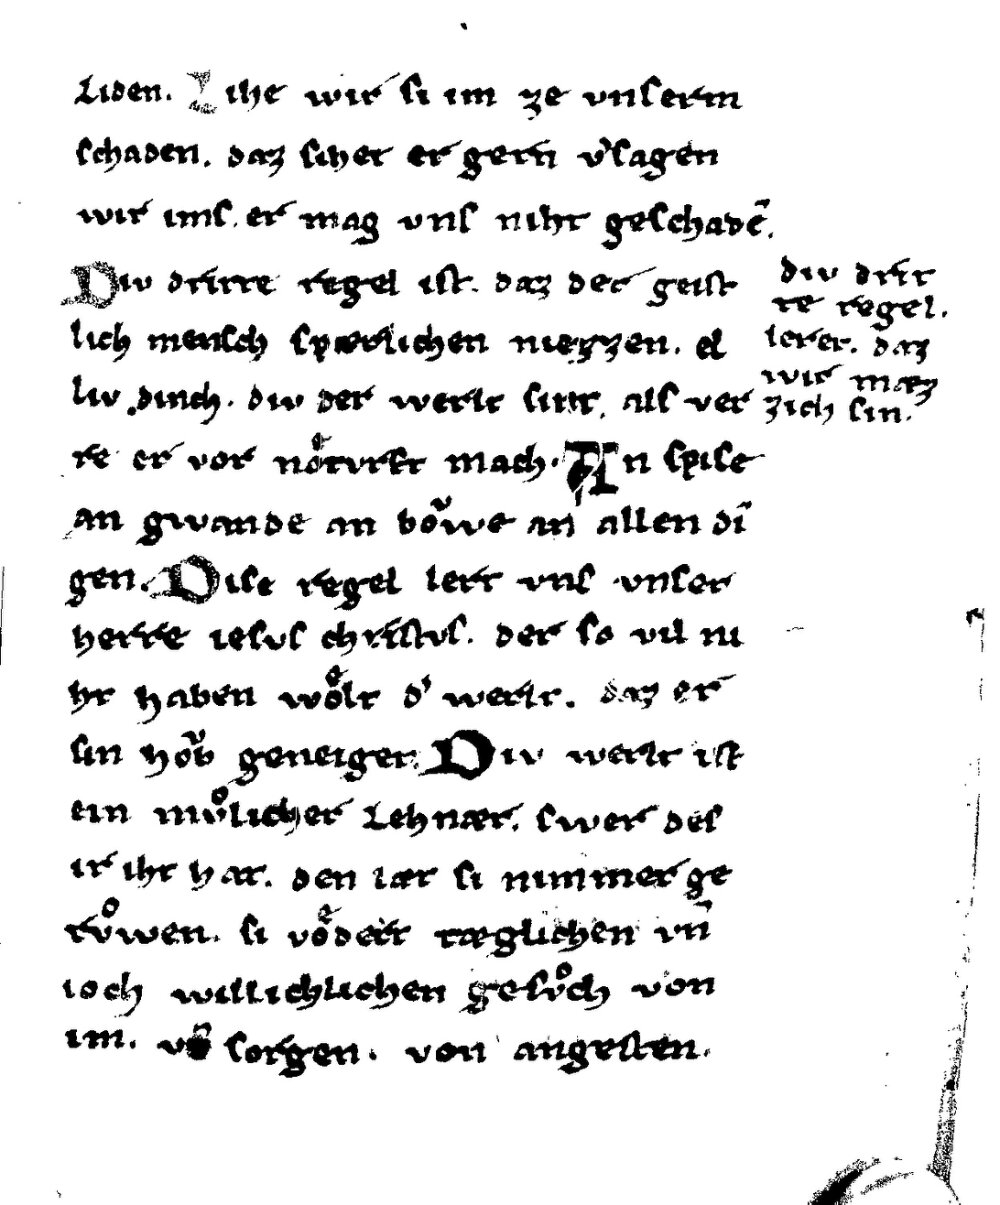 liden. Lihe wir si im ze vnserm
schaden. daz siher er gern v͛sagen
wir imſ. er mag vnſ niht geſchadē.
Diu dritte regel ist. daz der geist
lich menſch ſpærlichen niezzen. el
liv dinch. div der werlt sint. alſ ver
re er vor noͤturft mach. An ſpiſe
an gwande an boͮwe an allen dī
gen. Diſe regel lert vnſ vnſer
herre ieſvſ chriſtvſ. der ſo vil ni
ht haben woͤlt d͛ werlt. daz er
ſin hoͮb geneiget. Div werlt ist
ein mvͦlicher Lehnær. ſwer deſ
ir iht hat. den læt ſi nimmer ge
rvͦwen. ſi voͤdert tæglichen vn̄
ioch willichlichen geſvͦch von
im. vō ſorgen. von angeſten.
div drit
te regel.
leret. daz
wir mæz
zich ſin.